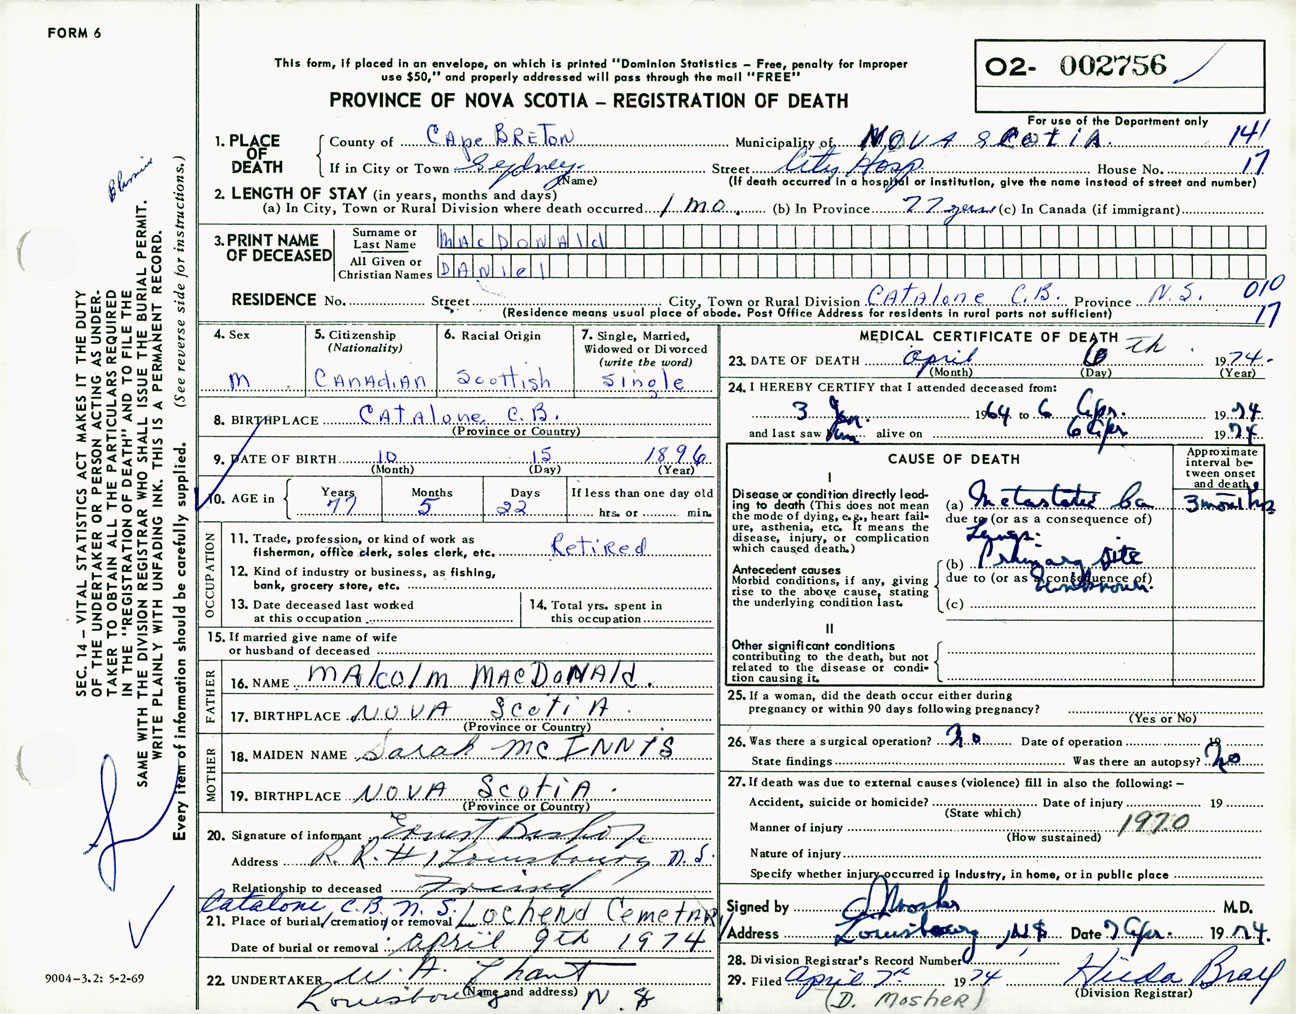 FORM 6
This form, if placed in an envelope, on which is printed "Dominion Statistics – Free, penalty for improper
use $50," and properly addressed will pass through the mail "FREE"
PROVINCE OF NOVA SCOTIA – REGISTRATION OF DEATH
O2- 002756
For use of the Department only
1. PLACE OF DEATH
County of Cape BRETON Municipality of NOVA SCOTIA. 141
If in City or Town Sydney. (Name) Street City Hosp House No. 17
(If death occurred in a hospital or institution, give the name instead of street and number)
2. LENGTH OF STAY (in years, months and days)
(a) In City, Town or Rural Division where death occurred 1 mo. (b) In Province 77 years (c) In Canada (if immigrant)
3. PRINT NAME OF DECEASED
Surname or Last Name MacDONAld
All Given or Christian Names DANiel
RESIDENCE No. Street City, Town or Rural Division CATAlone C.B. Province N.S. 010
(Residence means usual place of abode. Post Office Address for residents in rural parts not sufficient) 17
4. Sex M
5. Citizenship (Nationality) CANAdiAn
6. Racial Origin Scottish
7. Single, Married, Widowed or Divorced (write the word) Single
8. BIRTHPLACE CATAlone C.B.
(Province or Country)
9. DATE OF BIRTH 10 15 1896
(Month) (Day) (Year)
10. AGE in Years 77 Months 5 Days 22 If less than one day old hrs. or min.
OCCUPATION
11. Trade, profession, or kind of work as
fisherman, office clerk, sales clerk, etc. Retired
12. Kind of industry or business, as fishing,
bank, grocery store, etc.
13. Date deceased last worked
at this occupation
14. Total yrs. spent in
this occupation
15. If married give name of wife
or husband of deceased
FATHER
16. NAME MAlcolm MACDONAld.
17. BIRTHPLACE NOVA ScotiA.
(Province or Country)
MOTHER
18. MAIDEN NAME Sarah McINNIS
19. BIRTHPLACE NOVA ScotiA.
(Province or Country)
20. Signature of informant Ernest Bishop
Address R.R.#1 Louisbourg N.S.
Relationship to deceased Friend
Catalone, C.B. N.S.
21. Place of burial, cremation, or removal Lochend Cemetary
Date of burial or removal April 9th 1974
22. UNDERTAKER W. A. Chant
(Name and address)
Louisbourg N.S
MEDICAL CERTIFICATE OF DEATH
23. DATE OF DEATH April 6th 1974
(Month) (Day) (Year)
24. I HEREBY CERTIFY that I attended deceased from:
3 Jan. 1964 to 6 Apr. 1974
and last saw him alive on 6 Apr 1974
CAUSE OF DEATH
Approximate interval between onset and death
I
Disease or condition directly lead-
ing to death (This does not mean
the mode of dying, e.g., heart fail-
ure, asthenia, etc. It means the
disease, injury, or complication
which caused death.)
(a) Metastatic Ca 3 months
due to (or as a consequence of)
Lungs.
Antecedent causes
Morbid conditions, if any, giving
rise to the above cause, stating
the underlying condition last.
(b) Primary site
due to (or as a consequence of)
unknown.
(c)
II
Other significant conditions
contributing to the death, but not
related to the disease or condi-
tion causing it.
25. If a woman, did the death occur either during
pregnancy or within 90 days following pregnancy?
(Yes or No)
26. Was there a surgical operation? No Date of operation 19
State findings Was there an autopsy? No
27. If death was due to external causes (violence) fill in also the following: –
Accident, suicide or homicide? Date of injury 19
(State which)
Manner of injury 1970
(How sustained)
Nature of injury
Specify whether injury occurred in industry, in home, or in public place
Signed by Mosher M.D.
Address Louisbourg, NS Date 7 Apr. 1974.
28. Division Registrar's Record Number
29. Filed April 7th 1974 Hilda Bray
(Division Registrar)
(D. MosHER)
SEC. 14 – VITAL STATISTICS ACT MAKES IT THE DUTY
OF THE UNDERTAKER OR PERSON ACTING AS UNDER-
TAKER TO OBTAIN ALL THE PARTICULARS REQUIRED
IN THE "REGISTRATION OF DEATH" AND TO FILE THE
SAME WITH THE DIVISION REGISTRAR WHO SHALL ISSUE THE BURIAL PERMIT.
WRITE PLAINLY WITH UNFADING INK. THIS IS A PERMANENT RECORD.
Every item of information should be carefully supplied. (See reverse side for instructions.)
9004-3.2: 5-2-69